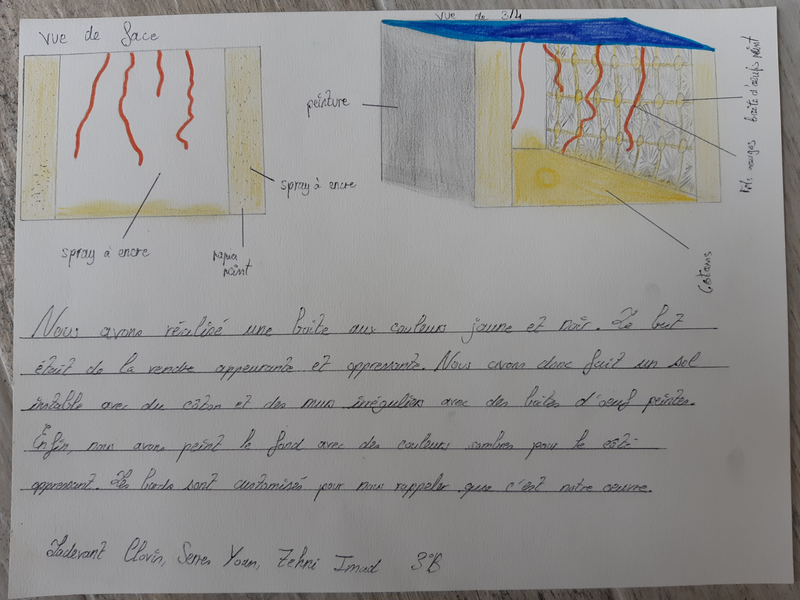 vue de face
vue de 3/4
peinture
boite d'oeufs peint
spray à encre
Fils rouges
spray à encre
papier
peint
Cotons
Nous avons réalisé une boite aux couleurs jaune et noir. Le but
était de la rendre appeurante et oppressante. Nous avons donc fait un sol
instable avec du côton et des murs irréguliers avec des boites d'oeuf peintes.
Enfin, nous avons peint le fond avec des couleurs sombres pour le côté
oppressant. Les bords sont customisés pour nous rappeler que c'est notre oeuvre.
Ladevant Clovis, Serres Yoan, Zehni Imad 3°B